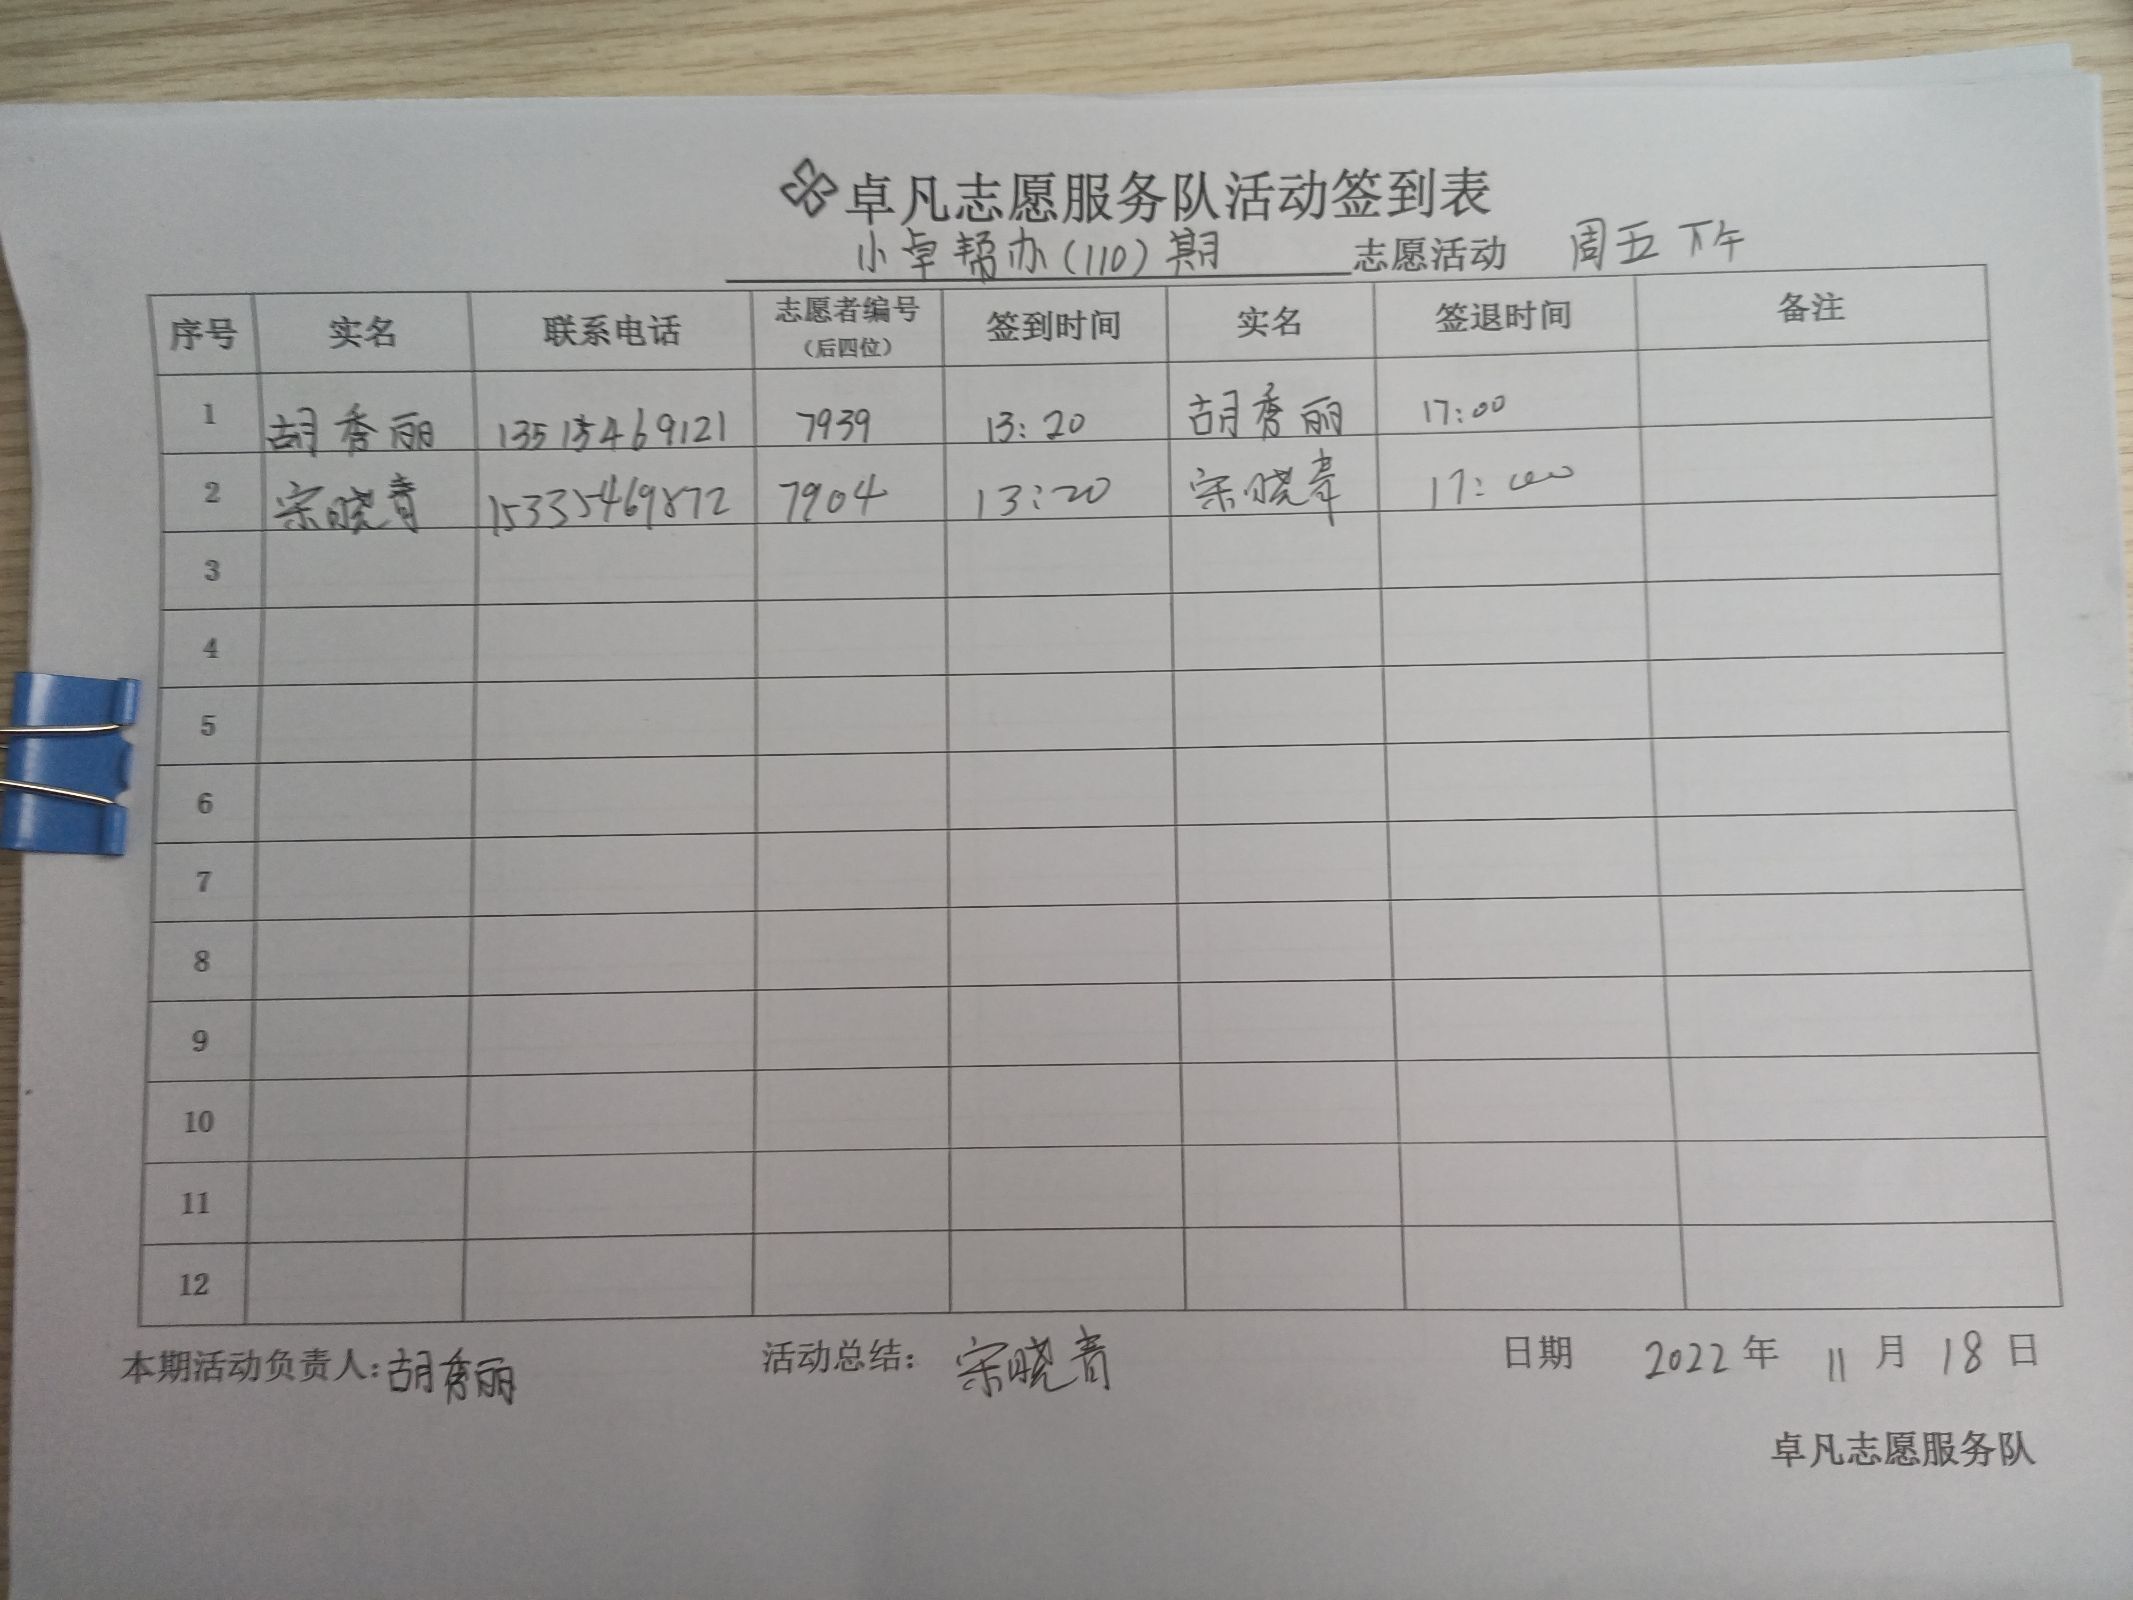 卓凡志愿服务队活动签到表
小卓帮办(110)期 志愿活动 周五下午
序号 实名 联系电话 志愿者编号 (后四位) 签到时间 实名 签退时间 备注
1 胡秀丽 13515469121 7939 13:20 胡秀丽 17:00
2 宋晓青 15335469872 7904 13:20 宋晓青 17:00
3
4
5
6
7
8
9
10
11
12
本期活动负责人:胡秀丽 活动总结: 宋晓青 日期 2022年 11月 18日
卓凡志愿服务队